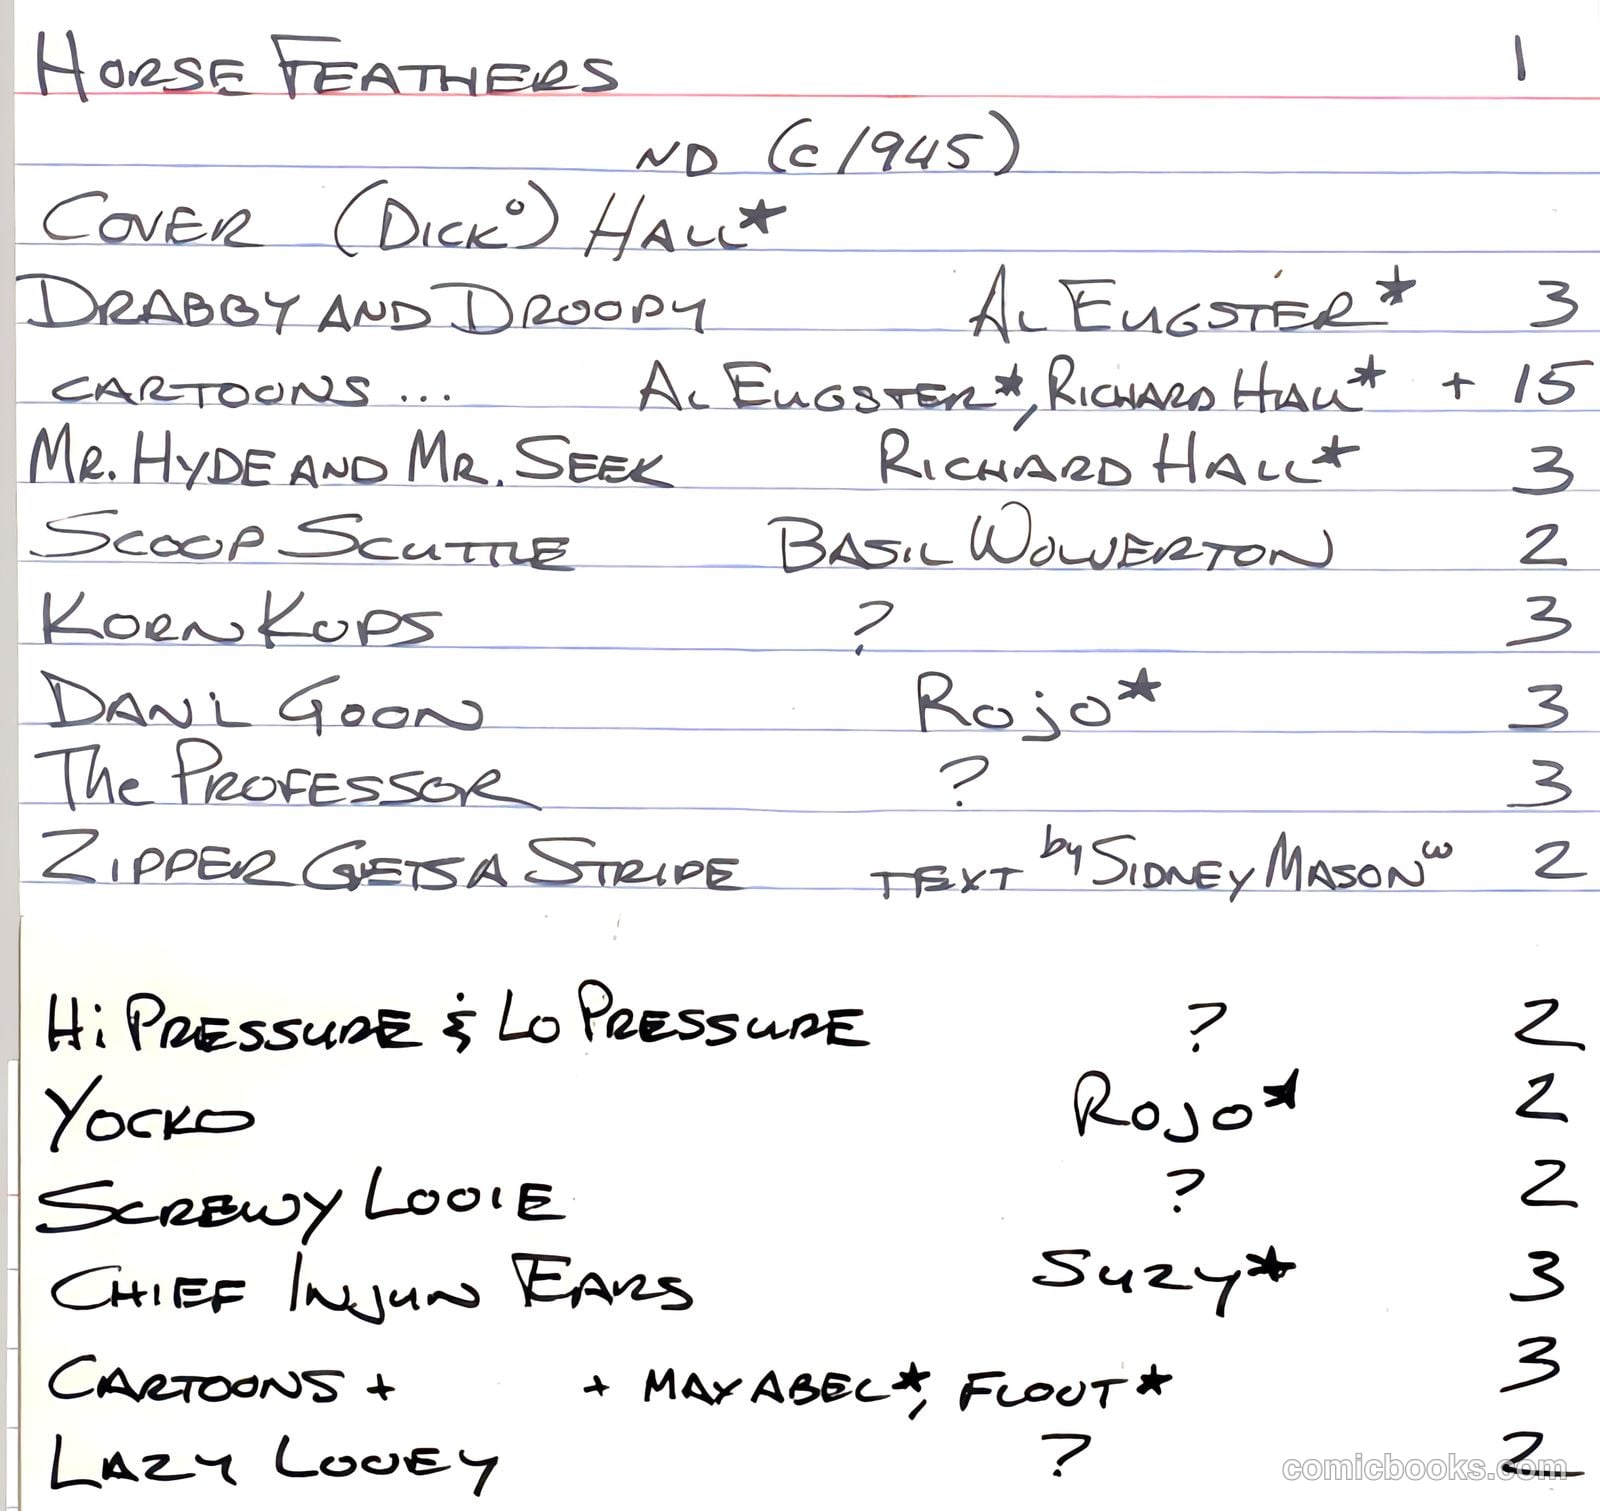 HORSE FEATHERS 1
ND (c 1945)
COVER (DICK°) HALL*
DRABBY AND DROOPY AL EUGSTER* 3
CARTOONS ... AL EUGSTER*, RICHARD HALL* + 15
MR. HYDE AND MR. SEEK RICHARD HALL* 3
SCOOP SCUTTLE BASIL WOLVERTON 2
KORN KOPS ? 3
DAN'L GOON ROJO* 3
The PROFESSOR ? 3
ZIPPER GETS A STRIPE TEXT by SIDNEY MASON ω 2
Hi PRESSURE & LO PRESSURE ? 2
YOCKO ROJO* 2
SCREWY LOOIE ? 2
CHIEF INJUN EARS SUZY* 3
CARTOONS + + MAX ABEL*, FLOUT* 3
LAZY LOOEY ? 2
comicbooks.com